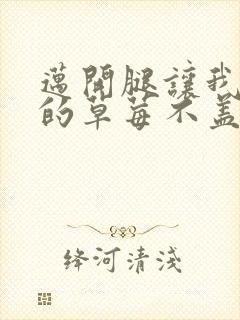 邁開腿讓我
的草莓不蓋
绛河清淺